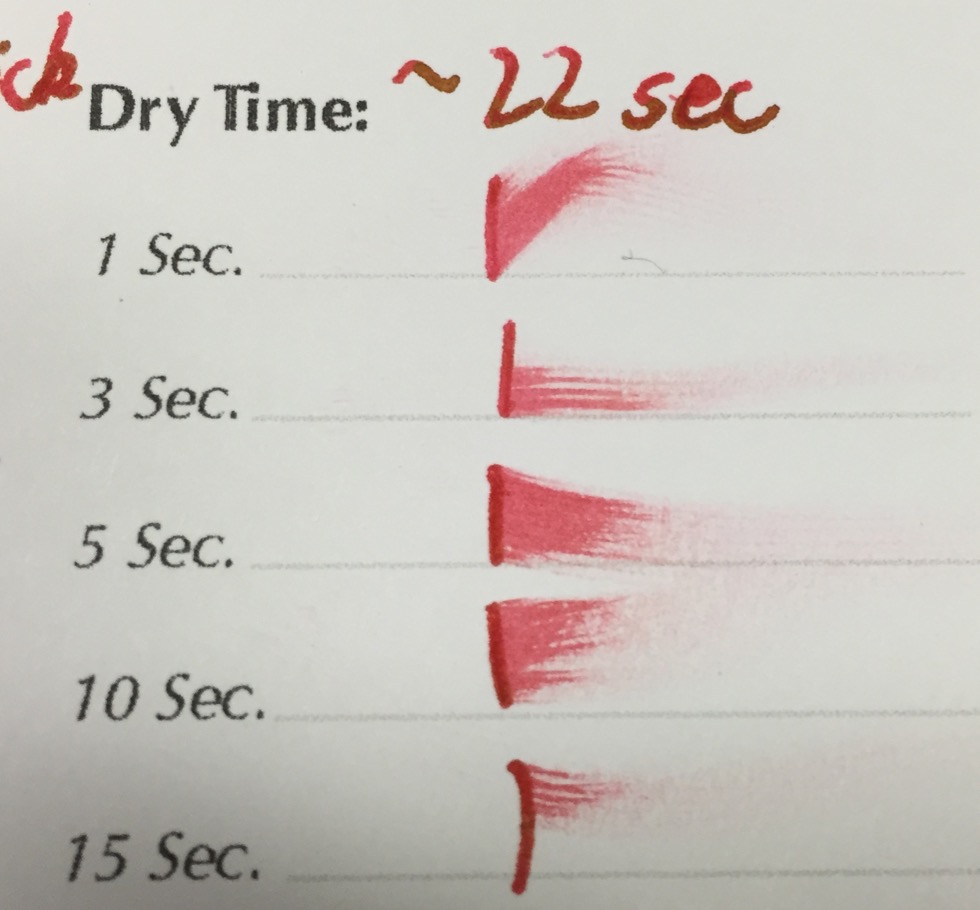 Dry Time: ~22 sec
1 Sec.
3 Sec.
5 Sec.
10 Sec.
15 Sec.